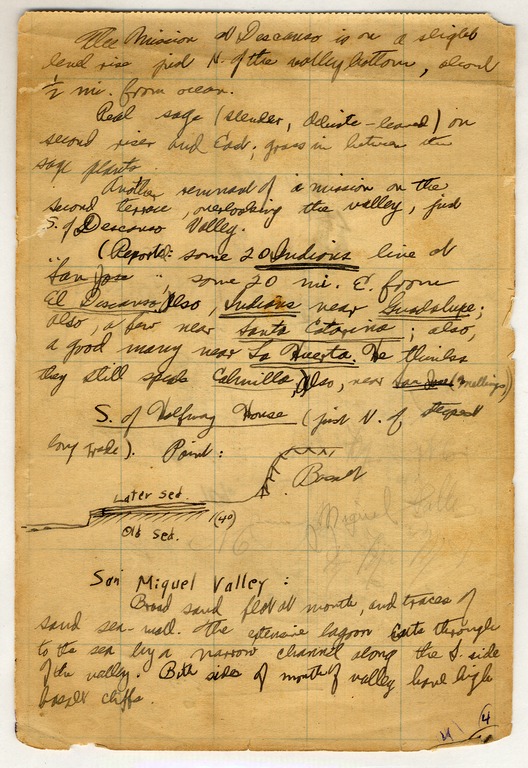 The Mission at Descanso is on a slight
level rise just N. of the valley bottom, about
½ mi. from ocean.
Real sage (slender, delicate-leaved) on
second riser and East; grass in between the
sage plants.
Another remnant of a mission on the
second terrace, overlooking the valley, just
S. of Descanso Valley.
(Reported: some 20 Indians live at
"San Jose", some 20 mi. E. from
El Descanso. Also, Indians near Guadalupe;
also, a few near Santa Catarina; also,
a good many near La Huerta. He thinks
they still speak Cahuilla. Also, near San Jose (Mellings))
S. of Halfway House (just N. of
long grade). Point:
Basalt
Later Sed.
Old Sed.
(4)
San Miguel Valley:
Broad sand flat at mouth, and traces of
sand sea-wall. The extensive lagoon cuts through
to the sea by a narrow channel along the S. side
of the valley. Both sides of mouth of valley have high
basalt cliffs.
4